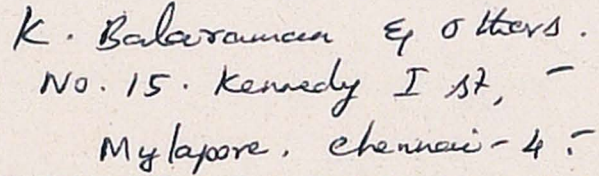 K. Balaraman & others.
No. 15. Kennedy I st, -
Mylapore. Chennai - 4 :-